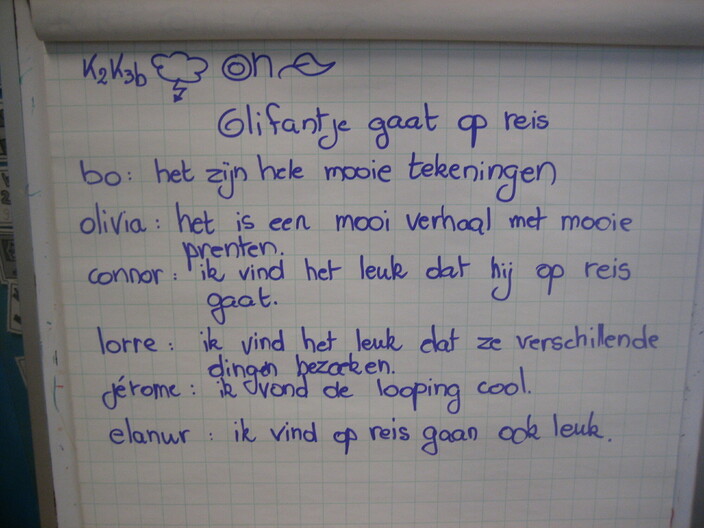 K2K3b on
Olifantje gaat op reis
bo: het zijn hele mooie tekeningen
olivia: het is een mooi verhaal met mooie
prenten.
connor: ik vind het leuk dat hij op reis
gaat.
lorre: ik vind het leuk dat ze verschillende
dingen bezoeken.
jérome: ik vond de looping cool.
elanur: ik vind op reis gaan ook leuk.